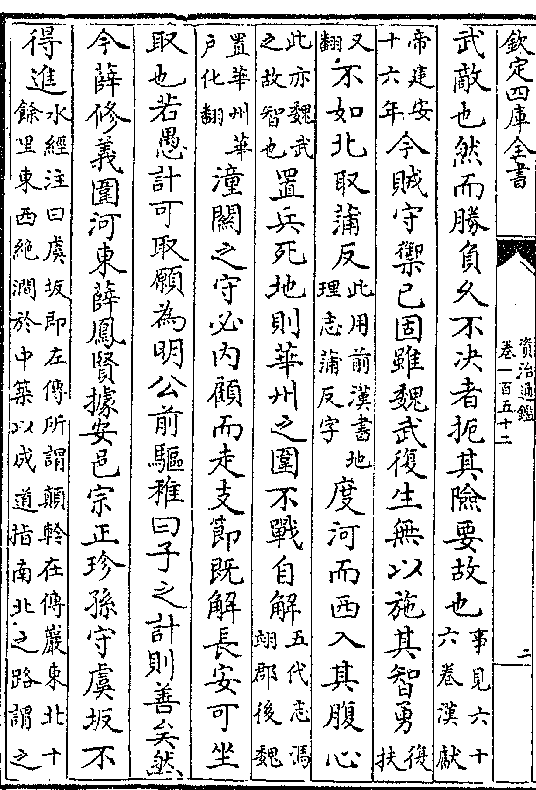 欽定四庫全書
資治通鑑
卷一百五十二
二
武敵也然而勝負久不决者扼其險要故也事見六十六卷漢獻
帝建安十六年今賊守禦已固雖魏武復生無以施其智勇復扶
又翻不如北取蒲反此用前漢書地理志蒲反字度河而西入其腹心
此亦魏武之故智也置兵死地則華州之圍不戰自解五代志馮翊郡後魏
置華州華戶化翻潼關之守必内顧而走支節既解長安可坐
取也若愚計可取願為明公前驅稚曰子之計則善矣然
今薛修義圍河東薛鳳賢據安邑宗正珍孫守虞坂不
得進水經注曰虞坂即在傳所謂顛軨在傅巖東北十餘里東西絶澗於中築以成道指南北之路謂之